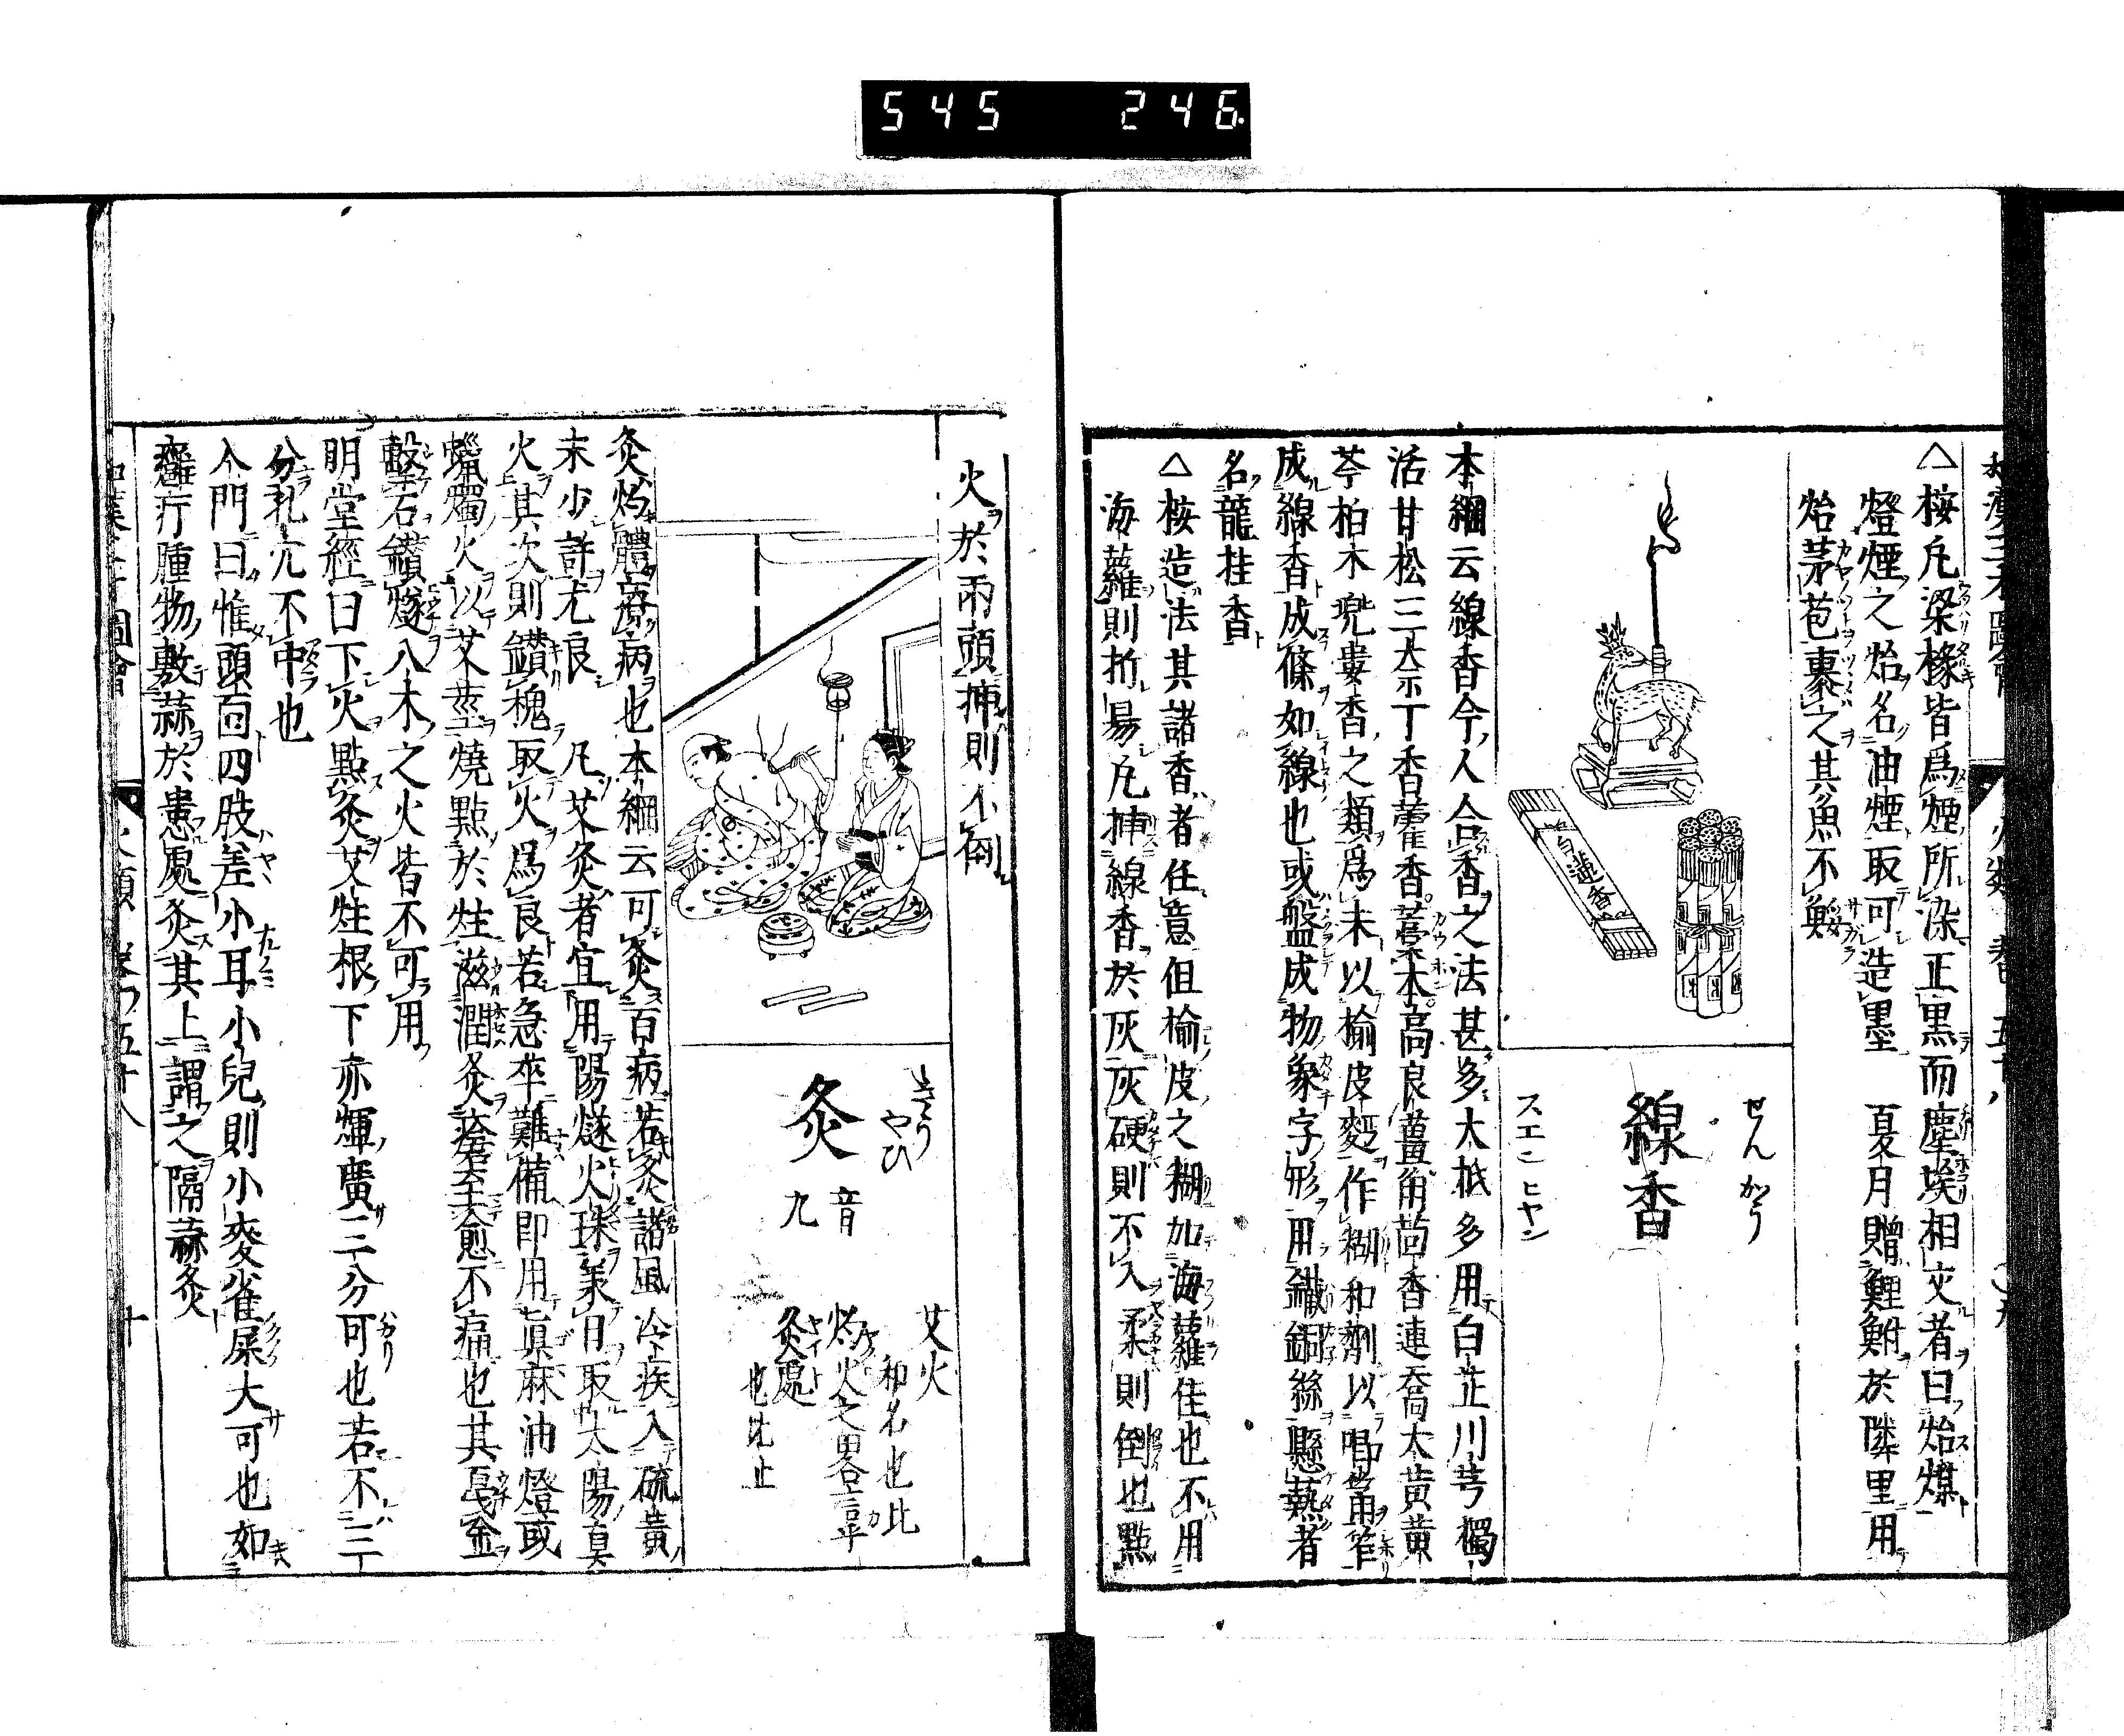 545 246
△桉凡梁椽皆爲煙所染正黒而塵埃相交者曰炲煤
燈煙之炲名油煙取可造墨 夏月贈鯉鮒於隣里用
炲茅苞裹之其魚不鯘
白蓮香
せんかう
線香
スエンヒヤン
本綱云線香今人合香之法甚多大抵多用白芷川芎獨
活甘松三奈丁香藿香藁本高良薑角茴香連喬大黄黄
芩柏木兜婁香之類爲末以榆皮麪作糊和劑以唧筩笮
成線香成條如線也或盤成物象字形用鐵銅絲懸爇者
名龍桂香
△桉造法其諸香者任意但榆皮之糊加海蘿佳也不用
海蘿則折易凡挿線香於灰灰硬則不入柔則倒也點
火於兩頭挿則不倒
きう
やひ
灸
音九
艾火
和名也比
灼火之畧言
灸處
也比止
灸灼體療病也本綱云可灸百病若灸諸風冷疾入硫黄
末少許尤良 凡艾灸者宜用陽燧火珠承日取太陽真
火其次則鑽槐取火爲良若急卒難備即用真麻油燈或
蠟燭火以艾莖燒點於炷滋潤灸瘡至愈不痛也其戛金
擊石鑽燧八木之火皆不可用
明堂經曰下火點灸艾炷根下亦輝廣三分可也若不三
分孔穴不中也
入門曰惟頭面四肢差小耳小兒則小麥雀屎大可也如
癰疔腫物敷蒜於患處灸其上謂之隔蒜灸